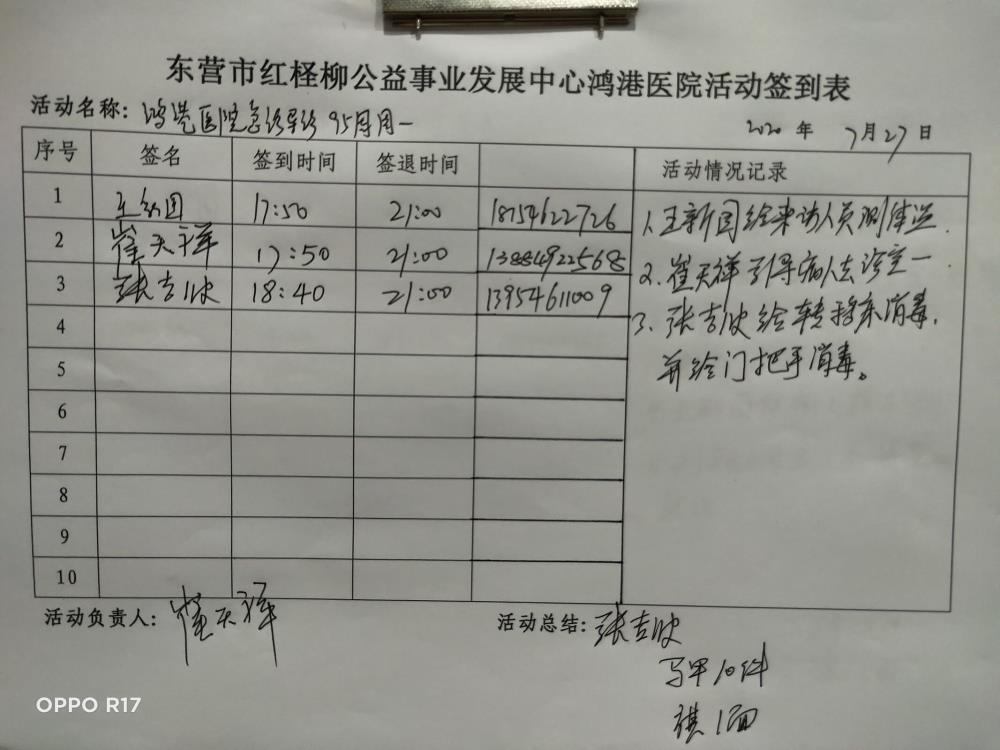 东营市红柽柳公益事业发展中心鸿港医院活动签到表
活动名称：鸿港医院急诊导诊95周周一
2020年7月27日
序号 签名 签到时间 签退时间 活动情况记录
1 王新国 17:50 21:00 18754622726
2 崔天祥 17:50 21:00 13884922568
3 张吉欣 18:40 21:00 13954611009
4
5
6
7
8
9
10
1.王新国给来访人员测体温.
2.崔天祥引导病人去诊室一
3.张吉欣给转移床消毒,
并给门把手消毒。
活动负责人：崔天祥
活动总结：张吉欣
马甲10件
旗1面
OPPO R17